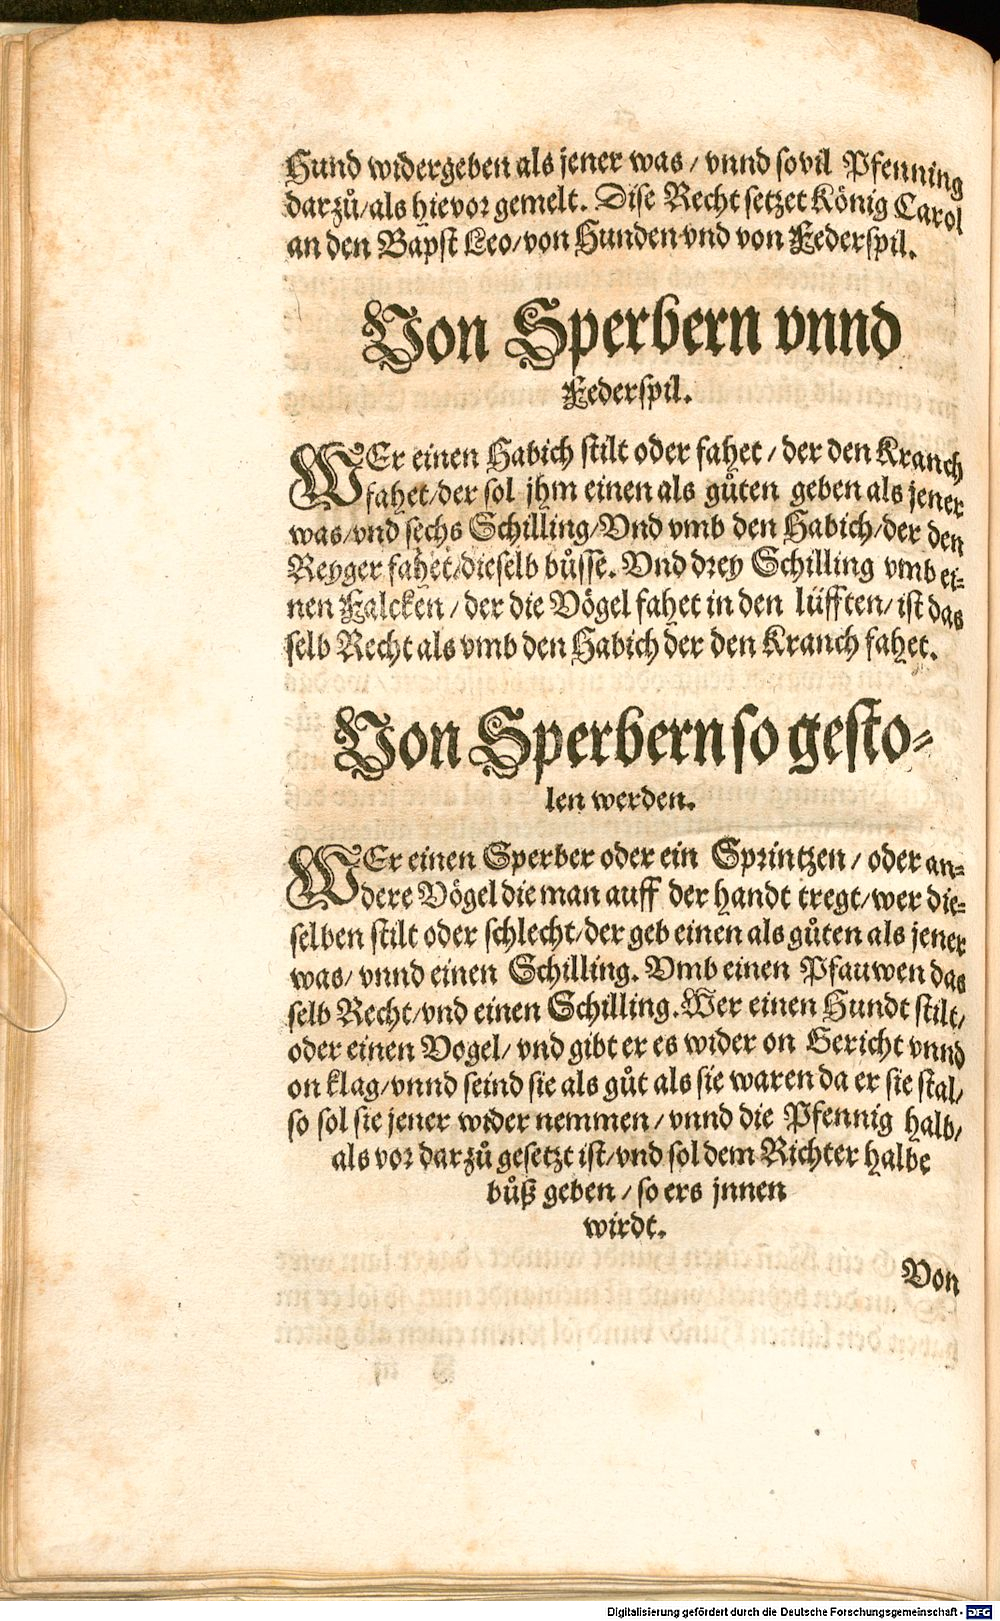 Hund widergeben als jener was / vnnd sovil Pfenning
darzů/als hievor gemelt. Dise Recht setzet König Carol
an den Bapst Leo/von Hunden vnd von Federspil.
Von Sperbern vnnd
Federspil.
WEr einen Habich stilt oder fahet / der den Kranch
fahet/der sol jhm einen als gůten geben als jener
was/vnd sechs Schilling/Vnd vmb den Habich/der den
Reyger fahet/dieselb bůsse. Vnd drey Schilling vmb ei-
nen Falcken / der die Vögel fahet in den lüfften/ ist das
selb Recht als vmb den Habich der den Kranch fahet.
Von Sperbern so gesto-
len werden.
WEr einen Sperber oder ein Sprintzen / oder an-
dere Vögel die man auff der handt tregt/wer die-
selben stilt oder schlecht/der geb einen als gůten als jener
was/ vnnd einen Schilling. Vmb einen Pfauwen das
selb Recht/vnd einen Schilling. Wer einen Hundt stilt/
oder einen Vogel/ vnd gibt er es wider on Gericht vnnd
on klag/vnnd seind sie als gůt als sie waren da er sie stal/
so sol sie jener wider nemmen / vnnd die Pfennig halb/
als vor darzů gesetzt ist/vnd sol dem Richter halbe
bůß geben / so ers jnnen
wirdt.
Von
Digitalisierung gefördert durch die Deutsche Forschungsgemeinschaft - DFG